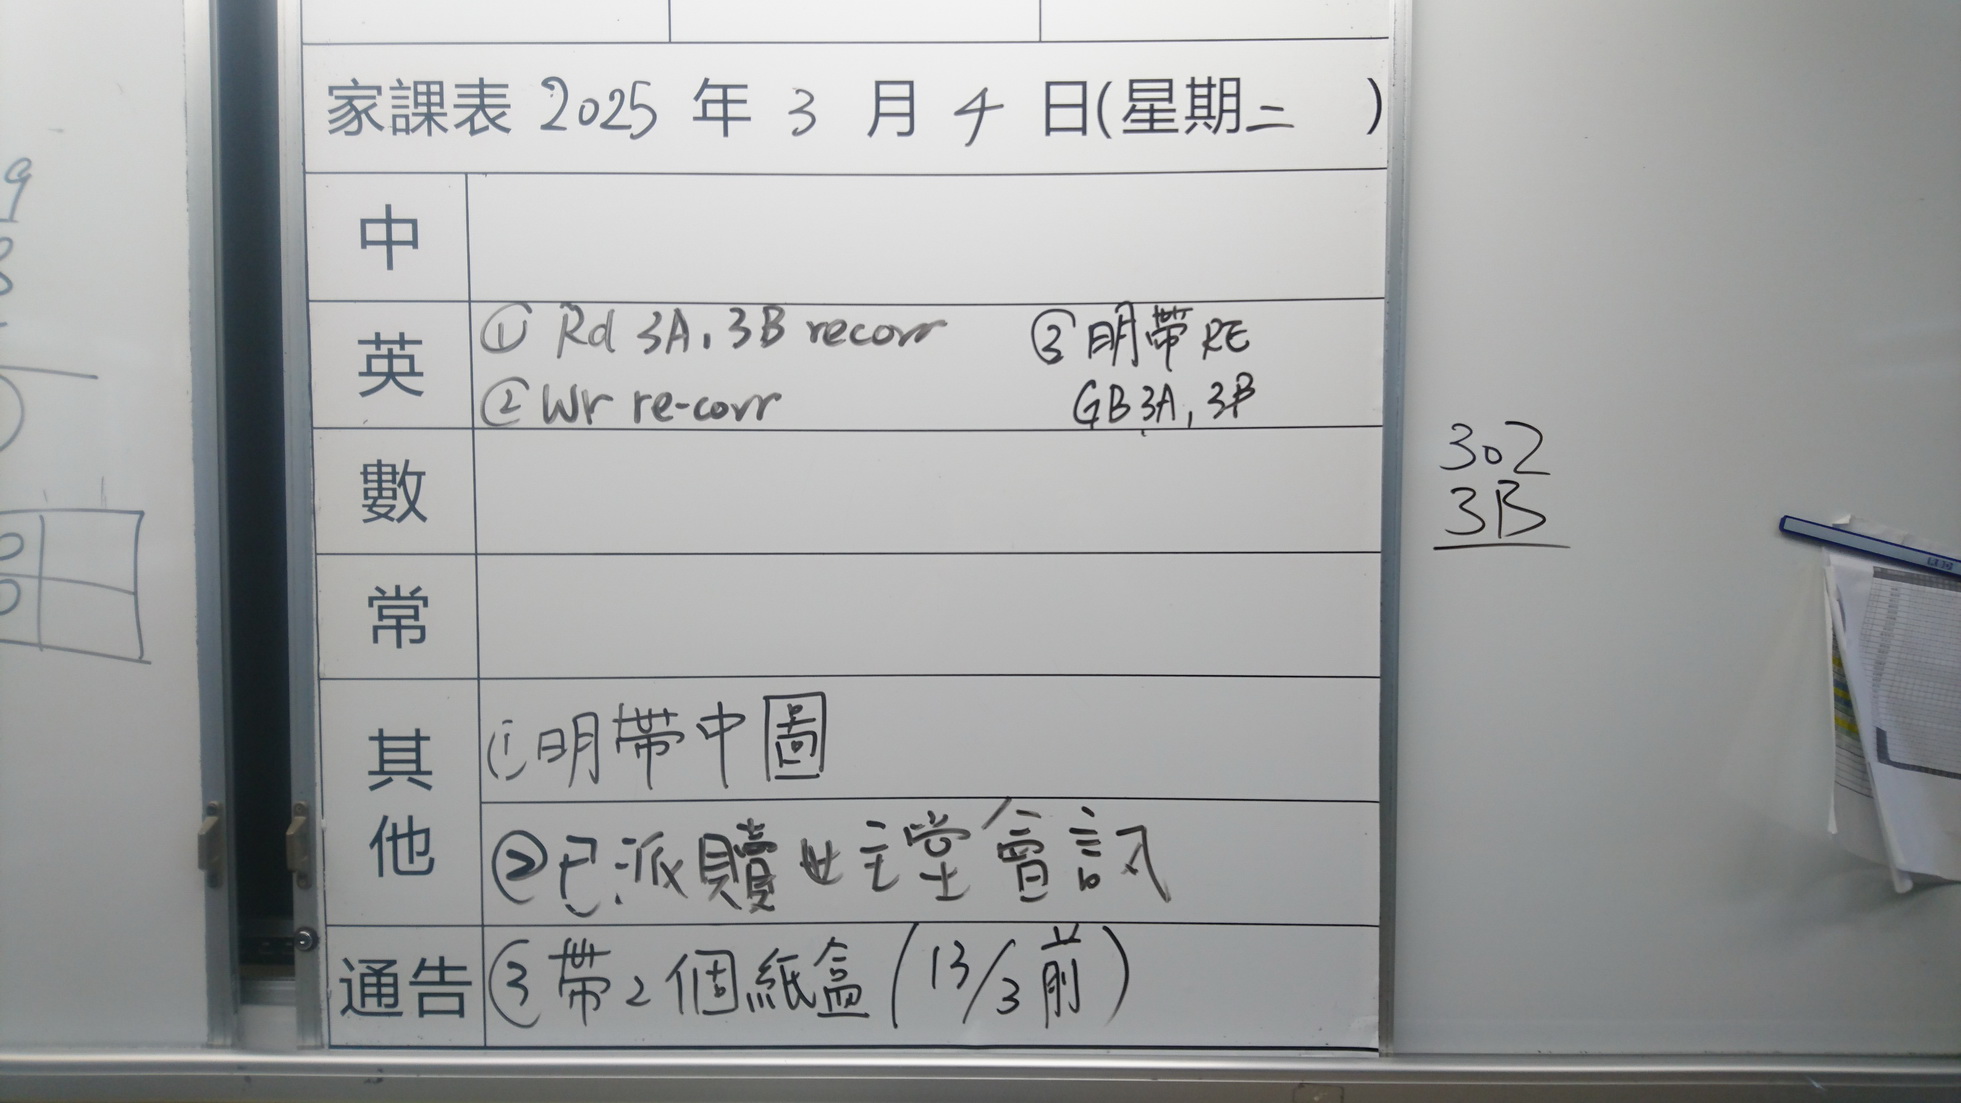 家課表 2025 年 3 月 4 日(星期二 )
中
英
① Rd 3A, 3B recorr
② Wr re-corr
③ 明帶 RE
GB 3A, 3B
數
常
其他
① 明帶中圖
② 已派贖世主堂會訊
通告
③ 帶2個紙盒 (13/3前)
302
3B
9
8
0
0